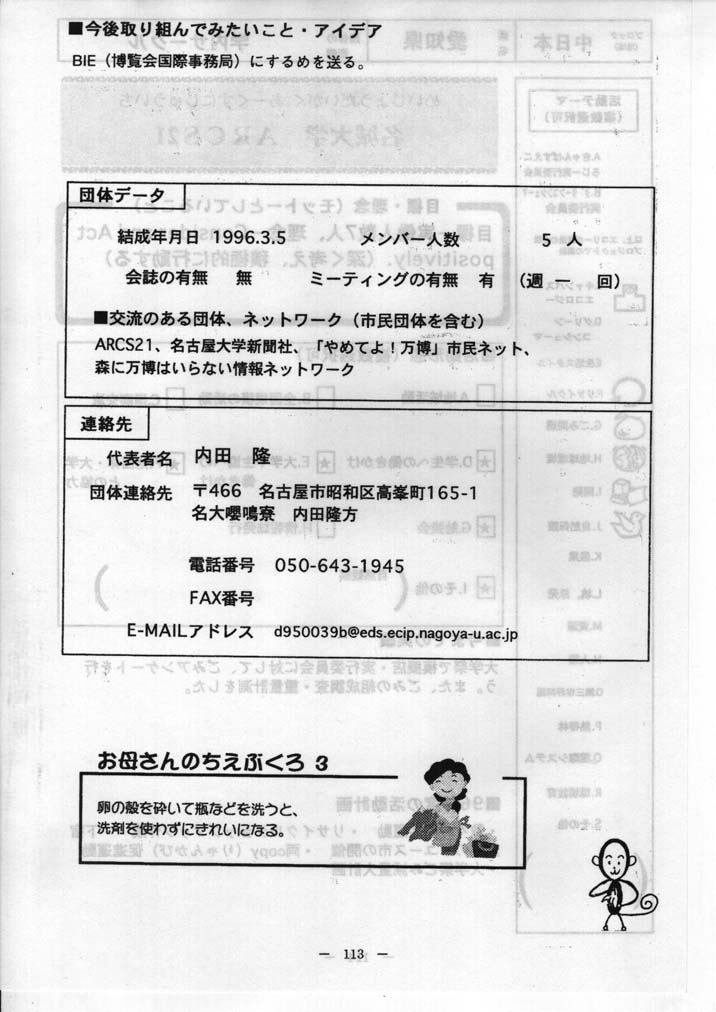 ■今後取り組んでみたいこと・アイデア
BIE（博覧会国際事務局）にするめを送る。
団体データ
結成年月日 1996.3.5 メンバー人数 5 人
会誌の有無 無 ミーティングの有無 有 （週 一 回）
■交流のある団体、ネットワーク（市民団体を含む）
ARCS21、名古屋大学新聞社、「やめてよ！万博」市民ネット、
森に万博はいらない情報ネットワーク
連絡先
代表者名 内田 隆
団体連絡先 〒466 名古屋市昭和区高峯町165-1
名大嚶鳴寮 内田隆方
電話番号 050-643-1945
FAX番号
E-MAILアドレス d950039b@eds.ecip.nagoya-u.ac.jp
お母さんのちえぶくろ 3
卵の殻を砕いて瓶などを洗うと、
洗剤を使わずにきれいになる。
－ 113 －